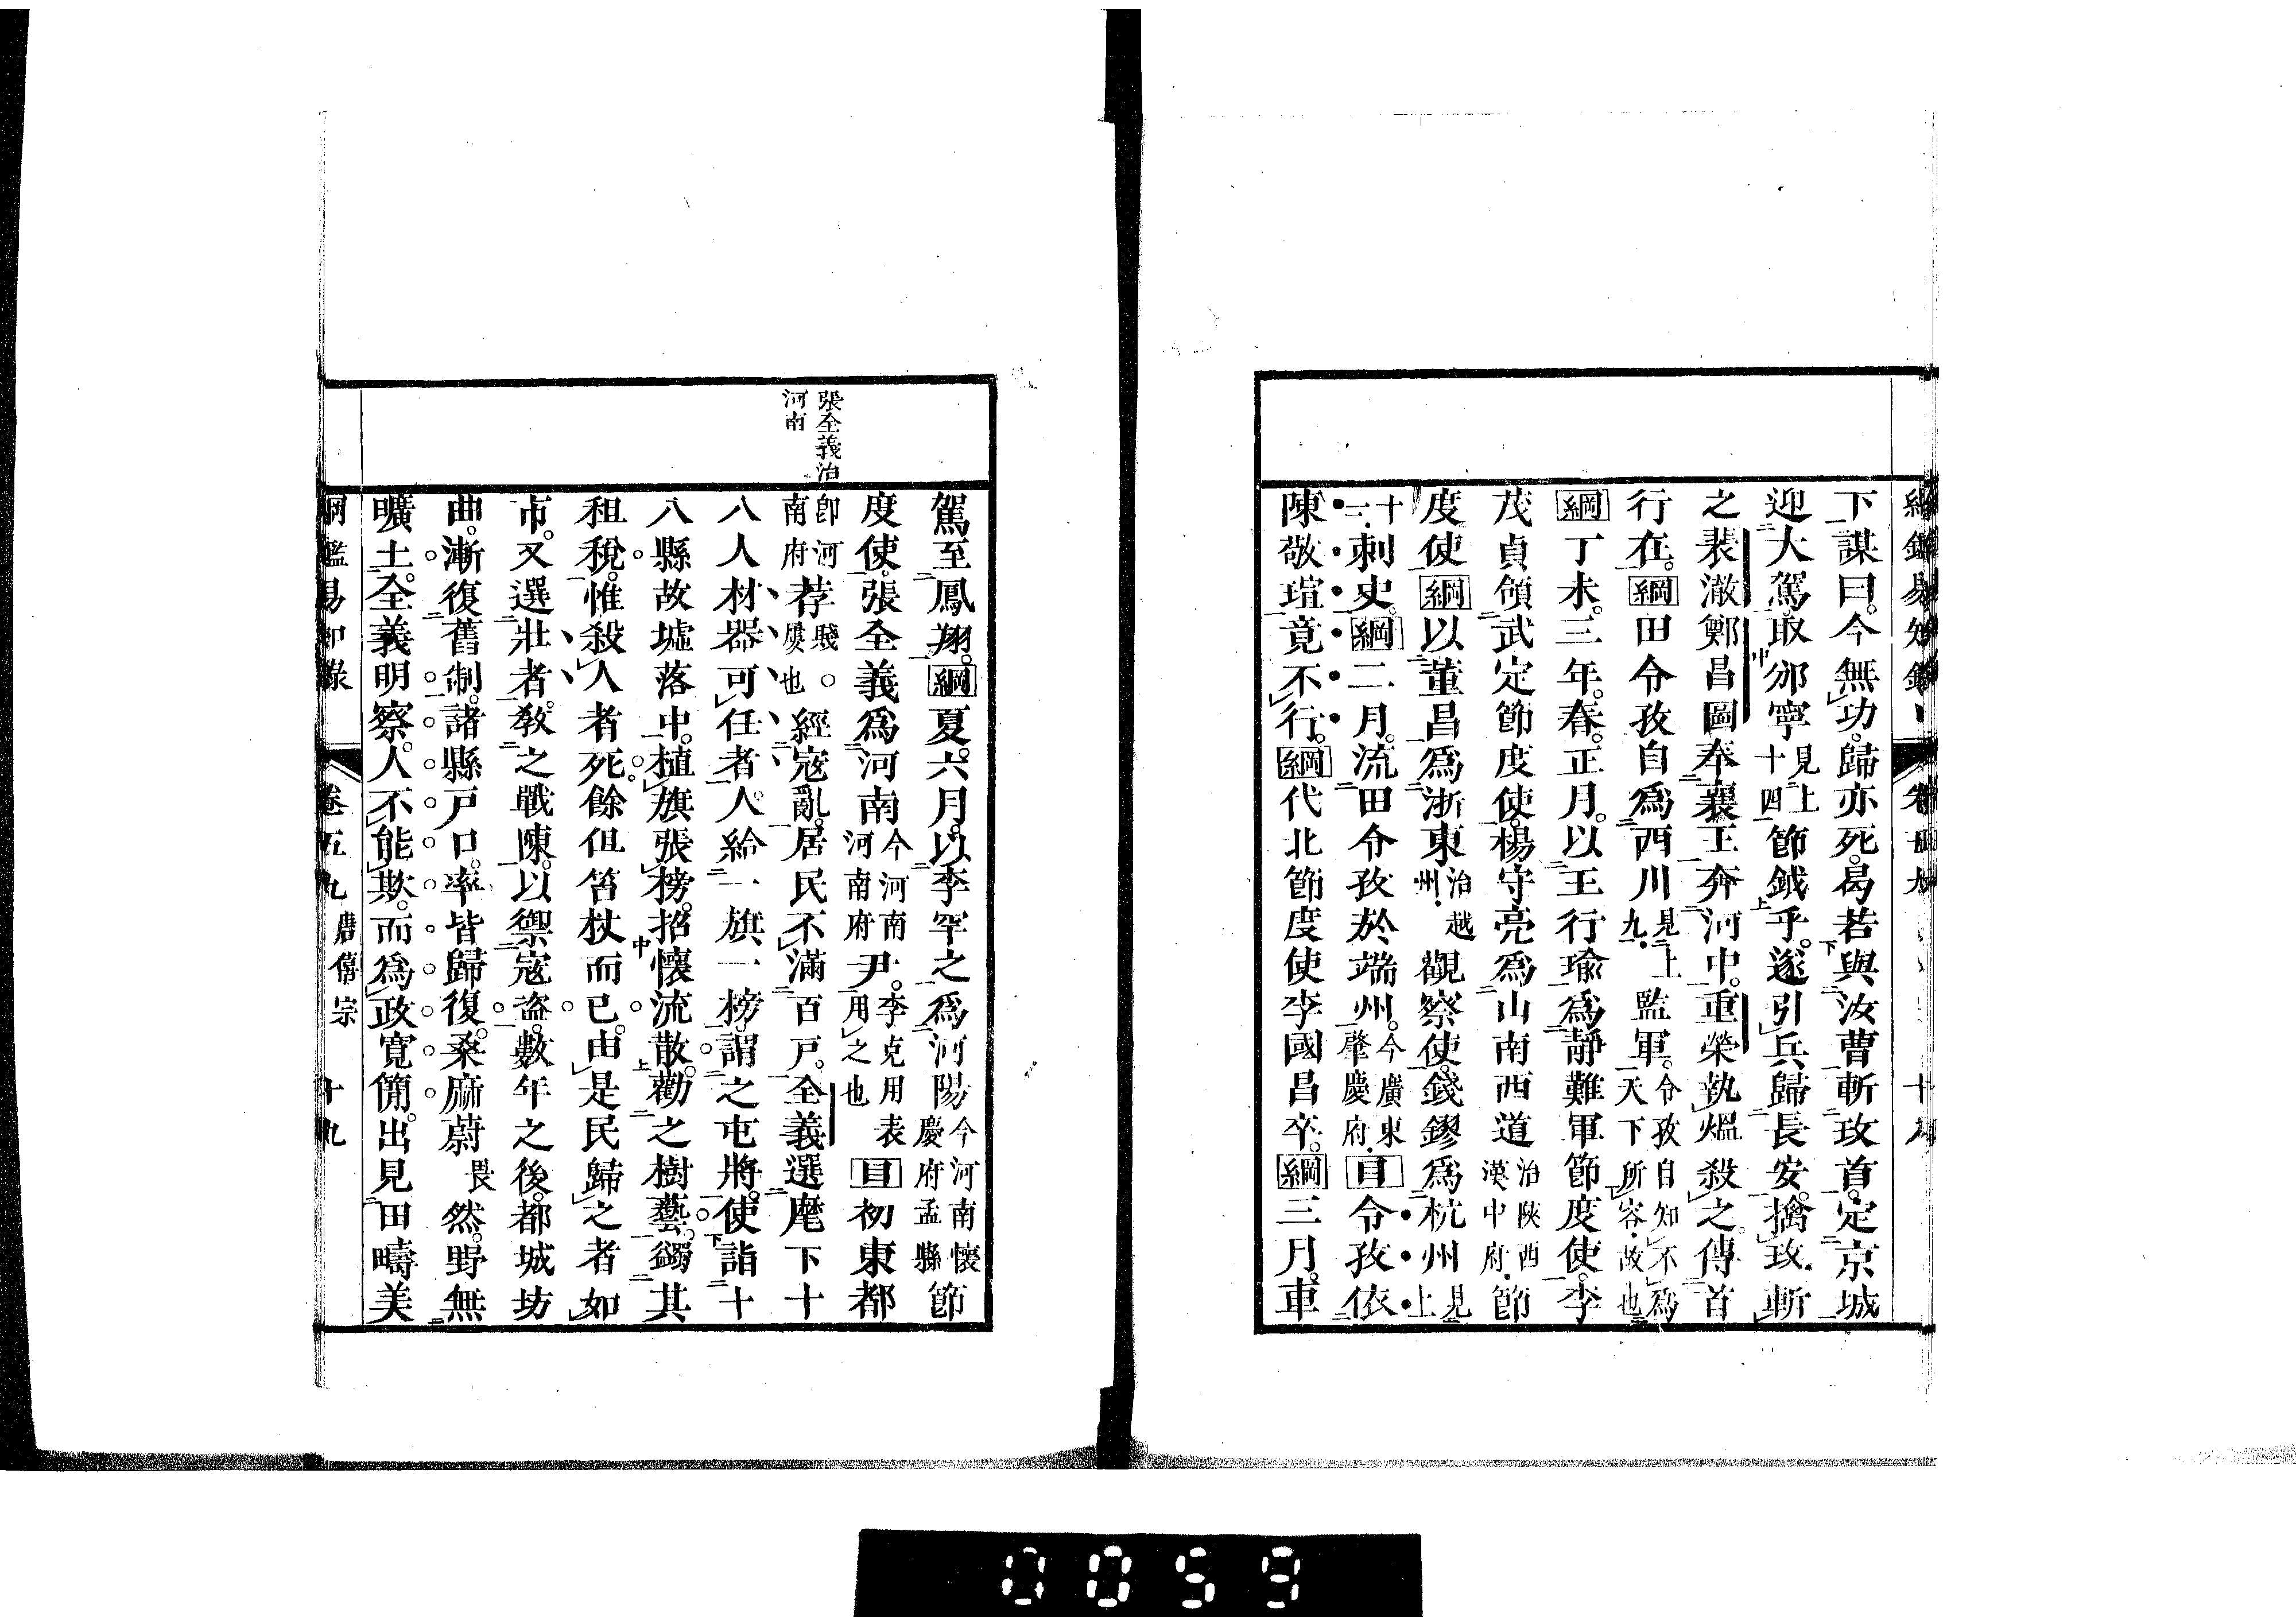 下謀曰。今無功。歸亦死。曷若與汝曹斬玫首。定京城
迎大駕。取邠寧見上十四節鉞乎。遂引兵歸長安。擒玫。斬
之裴澈鄭昌圖奉襄王奔河中。重榮執熅殺之。傳首
行在。綱田令孜自爲西川見上九監軍。令孜自知不爲天下所容故也
綱丁未。三年。春。正月。以王行瑜爲靜難軍節度使。李
茂貞領武定節度使。楊守亮爲山南西道治陝西漢中府節
度使綱以董昌爲浙東治越州觀察使。錢鏐爲杭州見上
十一刺史。綱二月。流田令孜於端州。今廣東肇慶府目令孜依
陳敬瑄竟不行。綱代北節度使李國昌卒。綱三月。車
張全義治
河南
駕至鳳翔。綱夏。六月。以李罕之爲河陽今河南懷慶府孟縣節
度使。張全義爲河南今河南河南府尹。李克用表用之也目初東都
卽河南府荐賤屢也經寇亂。居民不滿百戸。全義選麾下十
八人材器可任者。人給一旗一榜。謂之屯將。使詣十
八縣故墟落中。植旗張榜。招懷流散。勸之樹藝。蠲其
租稅。惟殺人者死。餘但笞杖而已。由是民歸之者如
市。又選壯者。教之戰陳。以禦寇盜。數年之後。都城坊
曲。漸復舊制。諸縣戸口。率皆歸復。桑麻蔚畏然。野無
曠土。全義明察。人不能欺。而爲政寬簡。出見田疇美
綱鑑易知錄 卷五九 唐僖宗 十九
0059